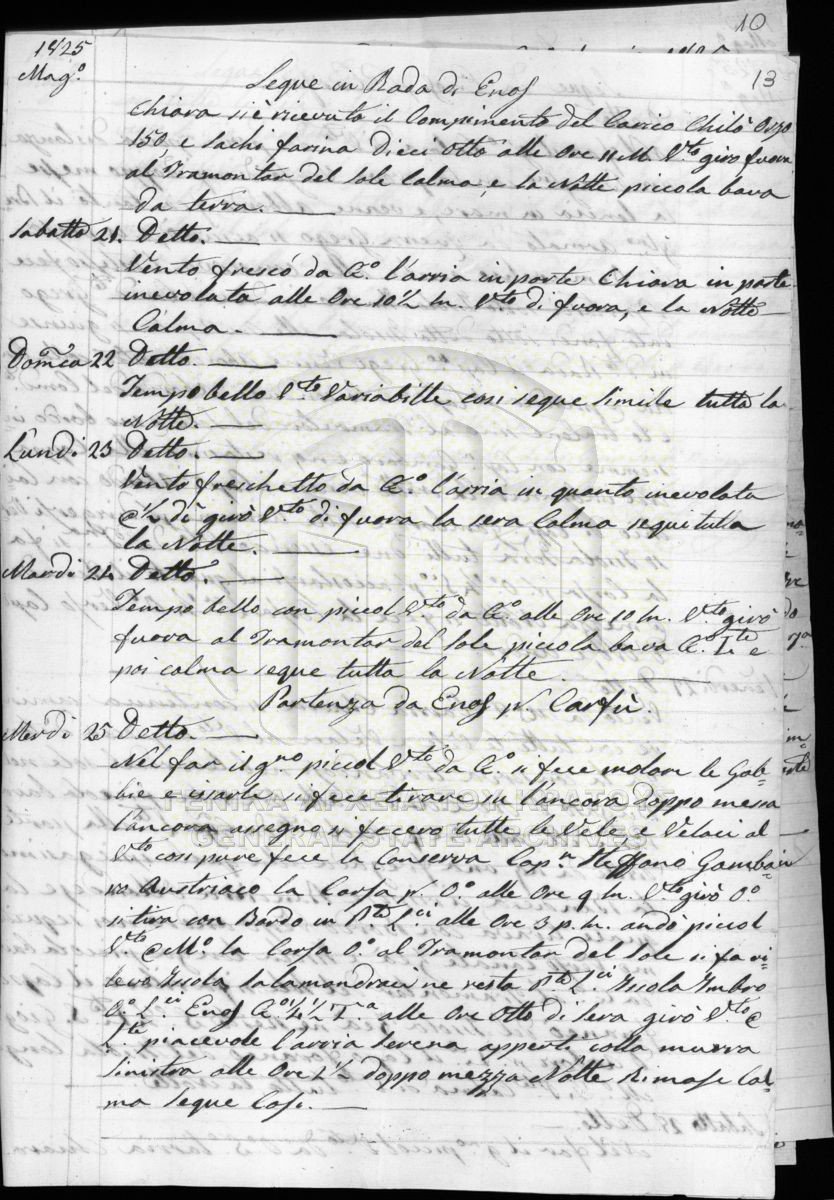 10
13
1825
Magº
Segue in Rada di Enos
Chiara si è ricevuto il Compimento del Carico Chilò Orzo
150, e Sachi farina Dieci Otto alle Ore 11 M. Vto giro fuora
al Tramontar del Sole Calma, e la Notte piccola bava
da terra.
Sabatto 21. Detto.
Vento fresco da Gº l'arria in parte Chiara in parte
inevolata alle Ore 10½ m. Vto di fuora, e la Notte
Calma.
Domca 22 Detto.
Tempo bello Vto Variabille cosi segue simille tutta la
Notte.
Lundi 23 Detto.
Vento freschetto da Gº l'arria in quanto inevolata
½ di girò Vto di fuora la sera Calma segui tutta
la Notte.
Mardi 24. Detto.
Tempo bello con piccol Vto da Gº alle Ore 10 m. Vto girò
fuora al Tramontar del Sole piccola bava Gº Lte e
poi calma segue tutta la Notte.
Partenza da Enos p. Corfù.
Merdi 25 Detto.
Nel far il gno piccol Vto da Gº si fece molare le Gab=
bie e issarle si fece tirare su l'ancora doppo messa
l'ancora assegno si fecero tutte le Vele e Velaci al
Vto cosi pure fece la Conserva Capn Steffano Gambai
no Austriaco la Corsa p. Oº alle Ore 9 m. Vto girò Oº
si tira con Bordo in alle Ore 3 p. m. andò piccol
Vto Mº la Corsa Oº al Tramontar del Sole si fa ri=
levo Issola Salamandraci ne resta Issola Imbro
Oº Enos Gº alle Ore Otto di Sera girò Vto
Lte piacevole l'arria Serena apperti colla murra
sinistra alle Ore 1½ doppo mezza Notte Rimase Cal=
ma Segue Cosi.
ΓΕΝΙΚΑ ΑΡΧΕΙΑ ΤΟΥ ΚΡΑΤΟΥΣ
GENERAL STATE ARCHIVES